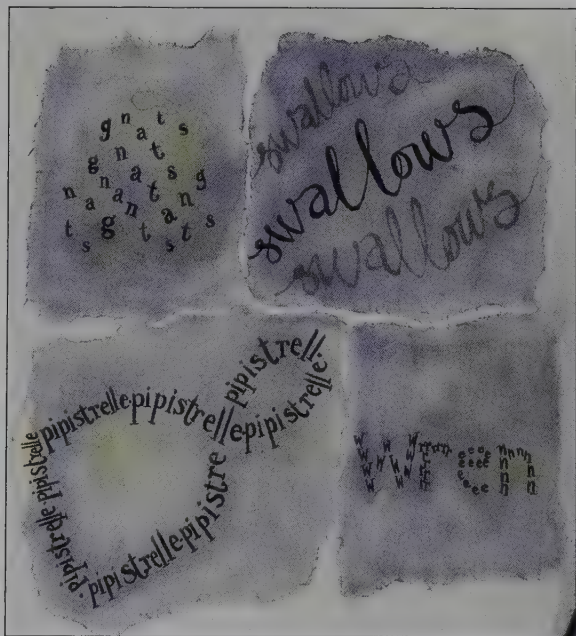 gnats
gnats
gnats
gnats
gnats
swallows
swallows
swallows
pipistrelle·pipistrelle·pipistrelle·pipistrelle·pipistrelle·pipistrelle·pipistrellepipistre
wren